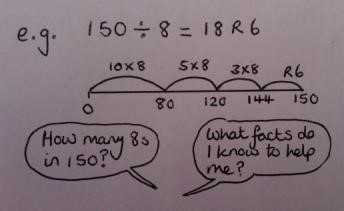 e.g. 150 ÷ 8 = 18 R6
10×8 5×8 3×8 R6
0 80 120 144 150
How many 8s
in 150?
What facts do
I know to help
me?